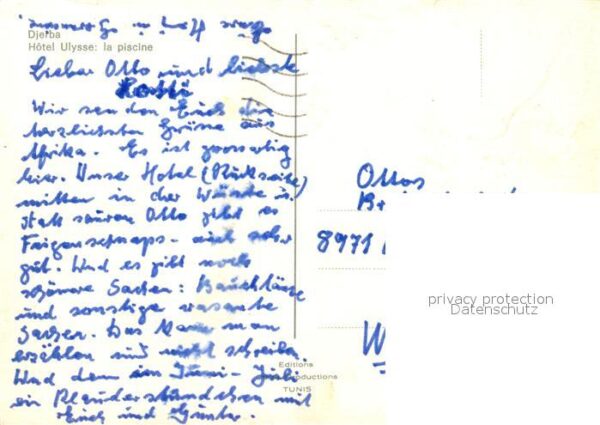 Djerba
Hôtel Ulysse: la piscine
Lieber Otto und liebste
Rossi
Wir senden Euch die
herzlichsten Grüsse aus
Afrika. Es ist grossartig
hier. Unser Hotel (Rückseite)
mitten in der Wüste u.
statt sauren Otto gibt es
Feigenschnaps - auch sehr
gut. Und es gibt noch
schönere Sachen: Bauchtänze
und sonstige rasante
Sachen. Das kann man
erzählen und nicht schreiben.
Und dann im Juni - Juli
ein Plauderstündchen mit
Euch und Günter.
Editions
TUNIS
Ottos
8971
privacy protection
Datenschutz